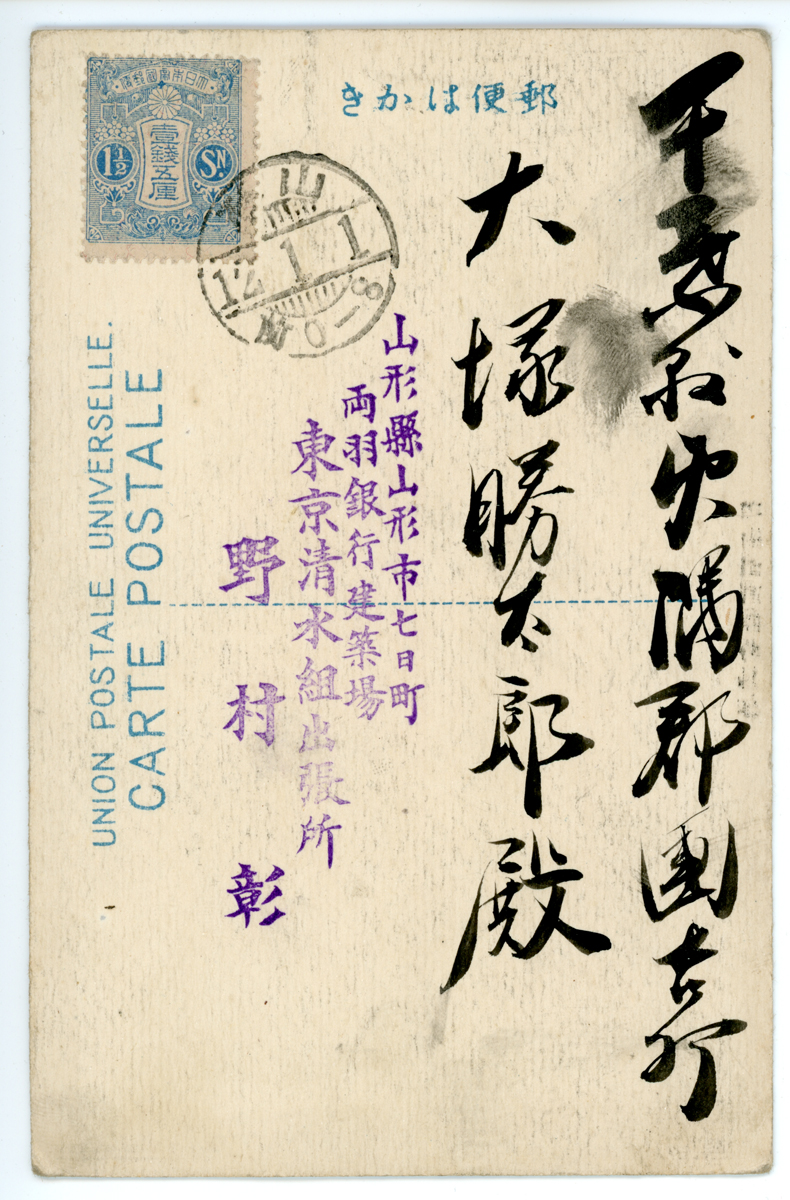 郵便はかき
千葉縣夷隅郡國吉町
大塚勝太郎殿
山形縣山形市七日町
両羽銀行建築場
東京清水組出張所
野村彰
大日本帝國郵便
壹錢五厘
1½ SN.
山形
12 1 1
前0-8
UNION POSTALE UNIVERSELLE.
CARTE POSTALE